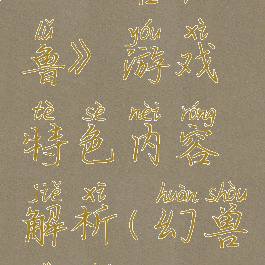 lǔ yóu xì
鲁》游戏
tè sè nèi róng
特色内容
jiě xī huàn shòu
解析(幻兽